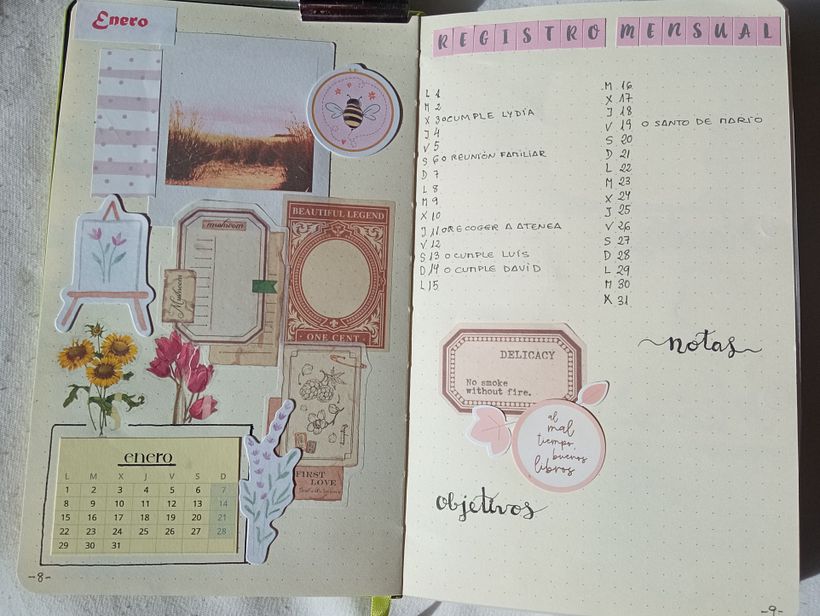 Enero
mushroom
Mushroom
BEAUTIFUL LEGEND
ONE CENT
FIRST
LOVE
enero
L M X J V S D
1 2 3 4 5 6 7
8 9 10 11 12 13 14
15 16 17 18 19 20 21
22 23 24 25 26 27 28
29 30 31
-8-
REGISTRO MENSUAL
L 1
M 2
X 3 o CUMPLE LYDIA
J 4
V 5
S 6 o REUNIÓN FAMILIAR
D 7
L 8
M 9
X 10
J 11 o RECOGER A ATENEA
V 12
S 13 o CUMPLE LUÍS
D 14 o CUMPLE DAVID
L 15
M 16
X 17
J 18
V 19 o SANTO DE MARIO
S 20
D 21
L 22
M 23
X 24
J 25
V 26
S 27
D 28
L 29
M 30
X 31
notas
DELICACY
No smoke
without fire.
al
mal
tiempo,
buenos
libros
objetivos
-9-